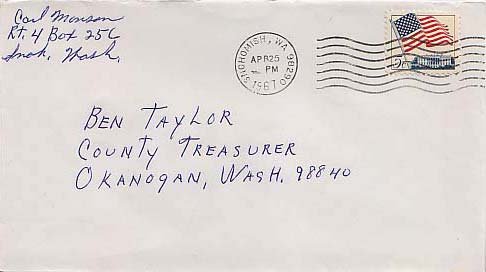 Carl Monson
Rt. 4 Box 256
Snoh, Wash.
SNOHOMISH, WA 98290
APR 25
PM
1967
BEN TAYLOR
COUNTY TREASURER
OKANOGAN, WASH. 98840